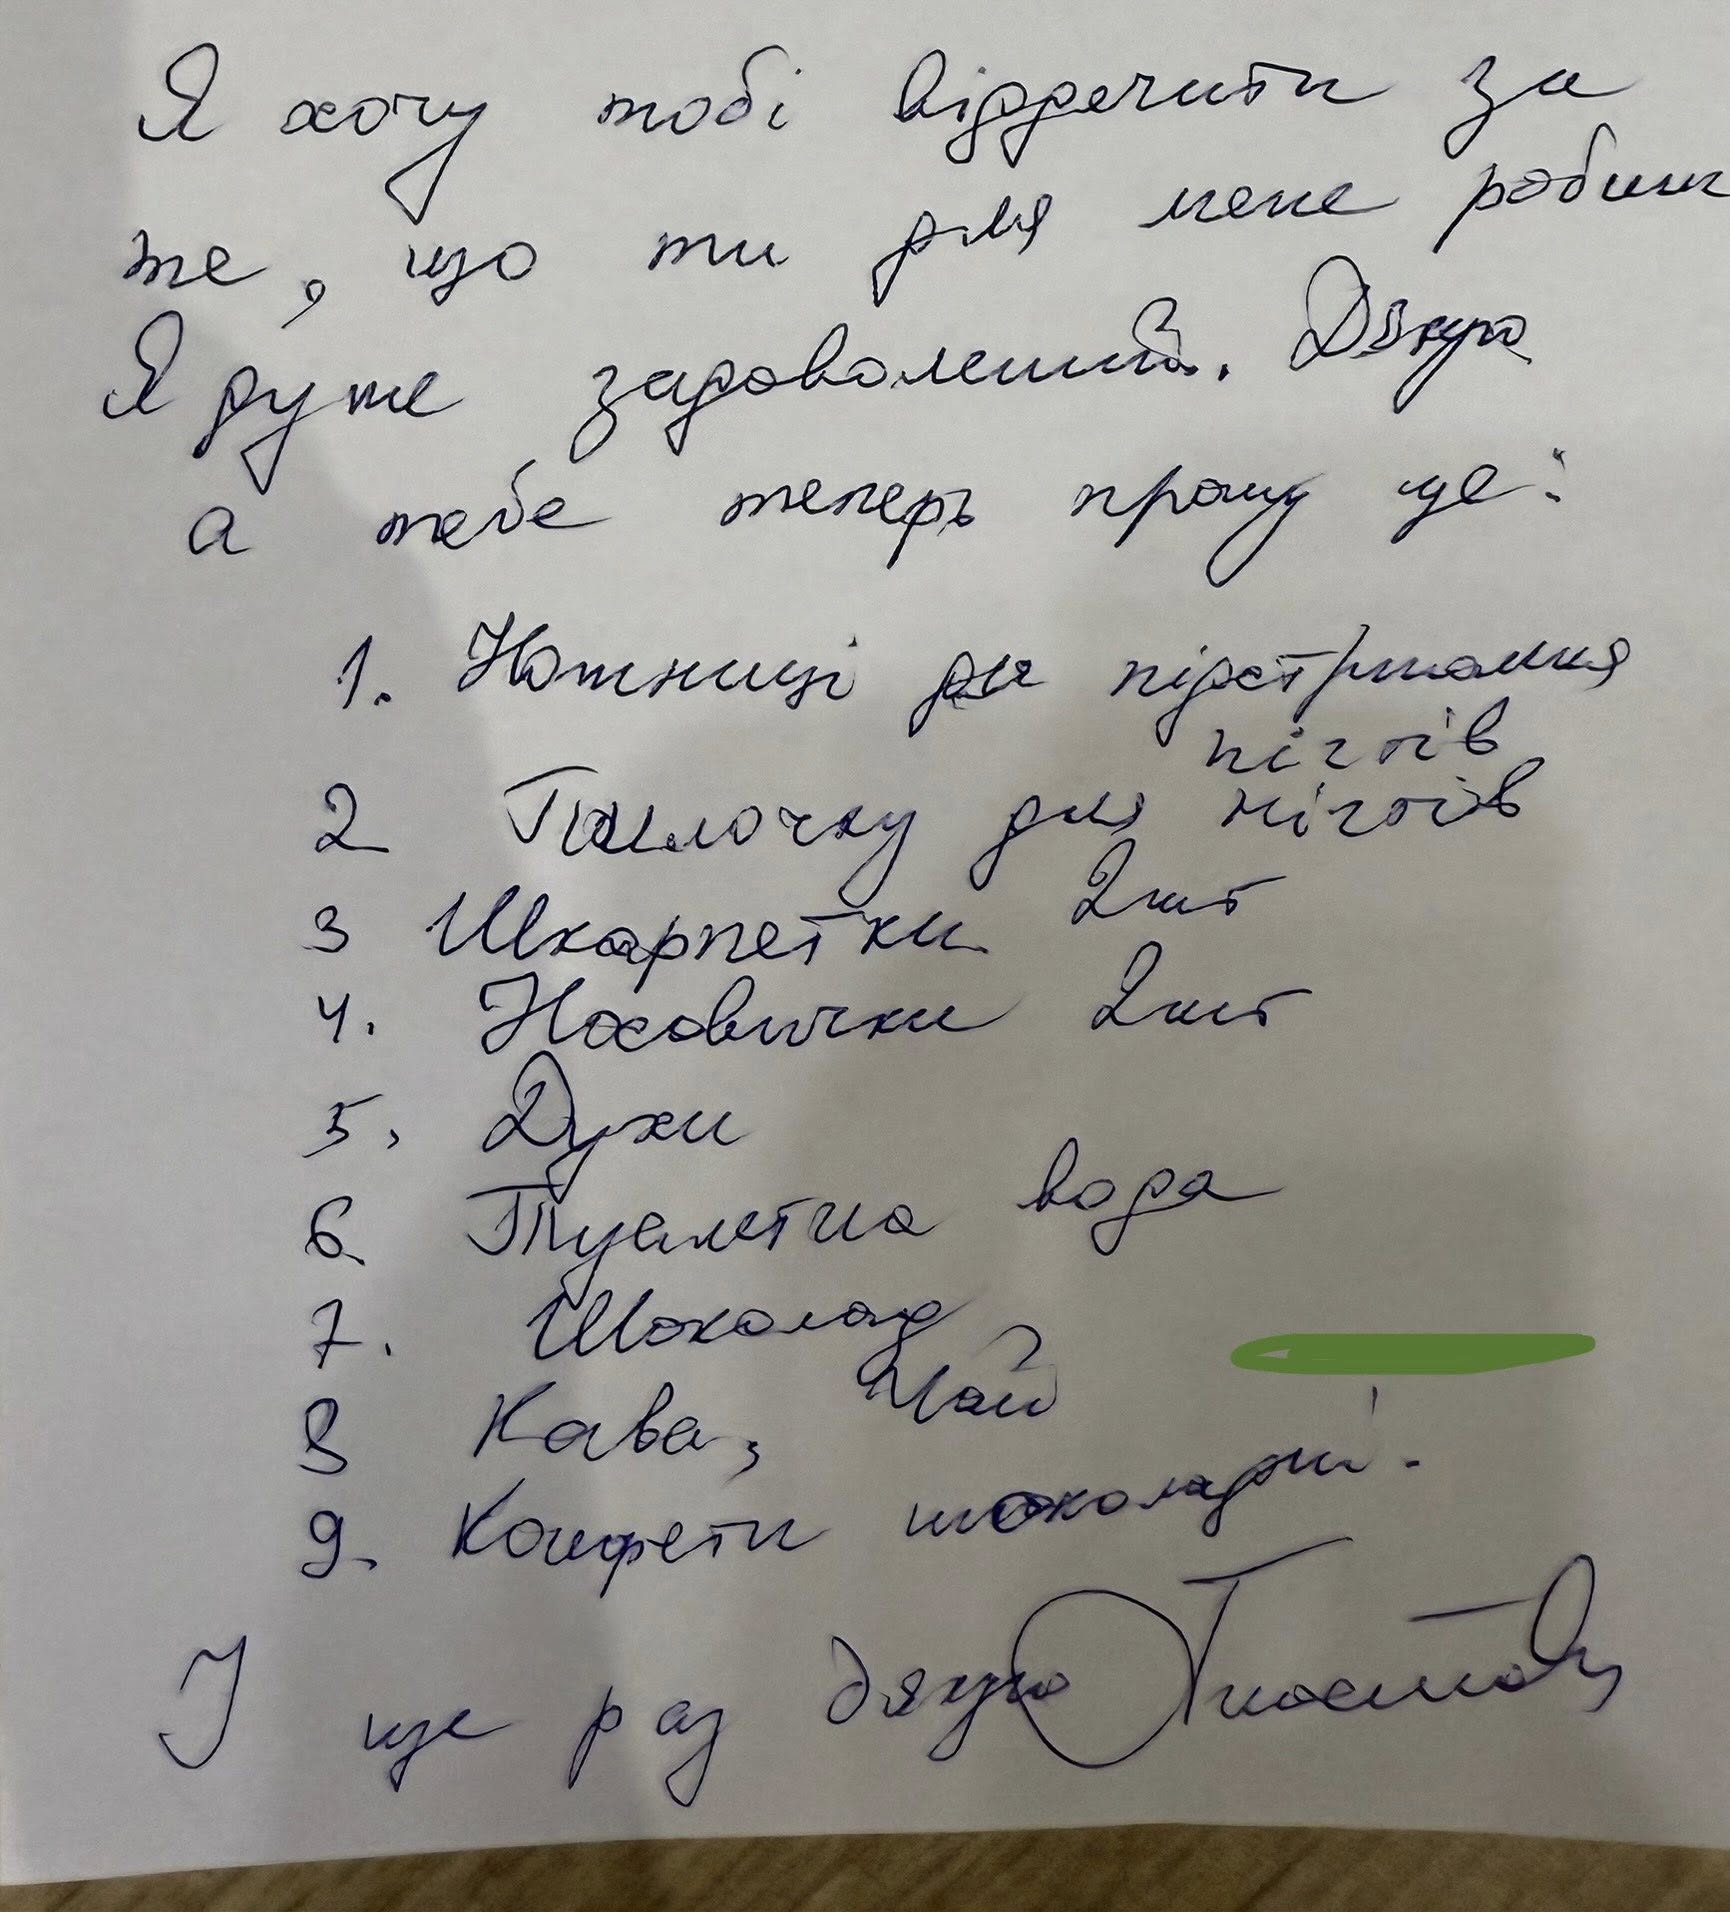 Я хочу тобі віддячити за
те, що ти для мене робиш
Я дуже задоволений. Дякую
а тебе тепер прошу це:
1. Ножниці для підстригання
нігтів
2 Пилочку для нігтів
3 Шкарпетки 2шт
4. Носовички 2шт
5. Духи
6. Туалетна вода
7. Шоколад
8 Кава, Чай
9. Конфети шоколадні.
І ще раз дякую